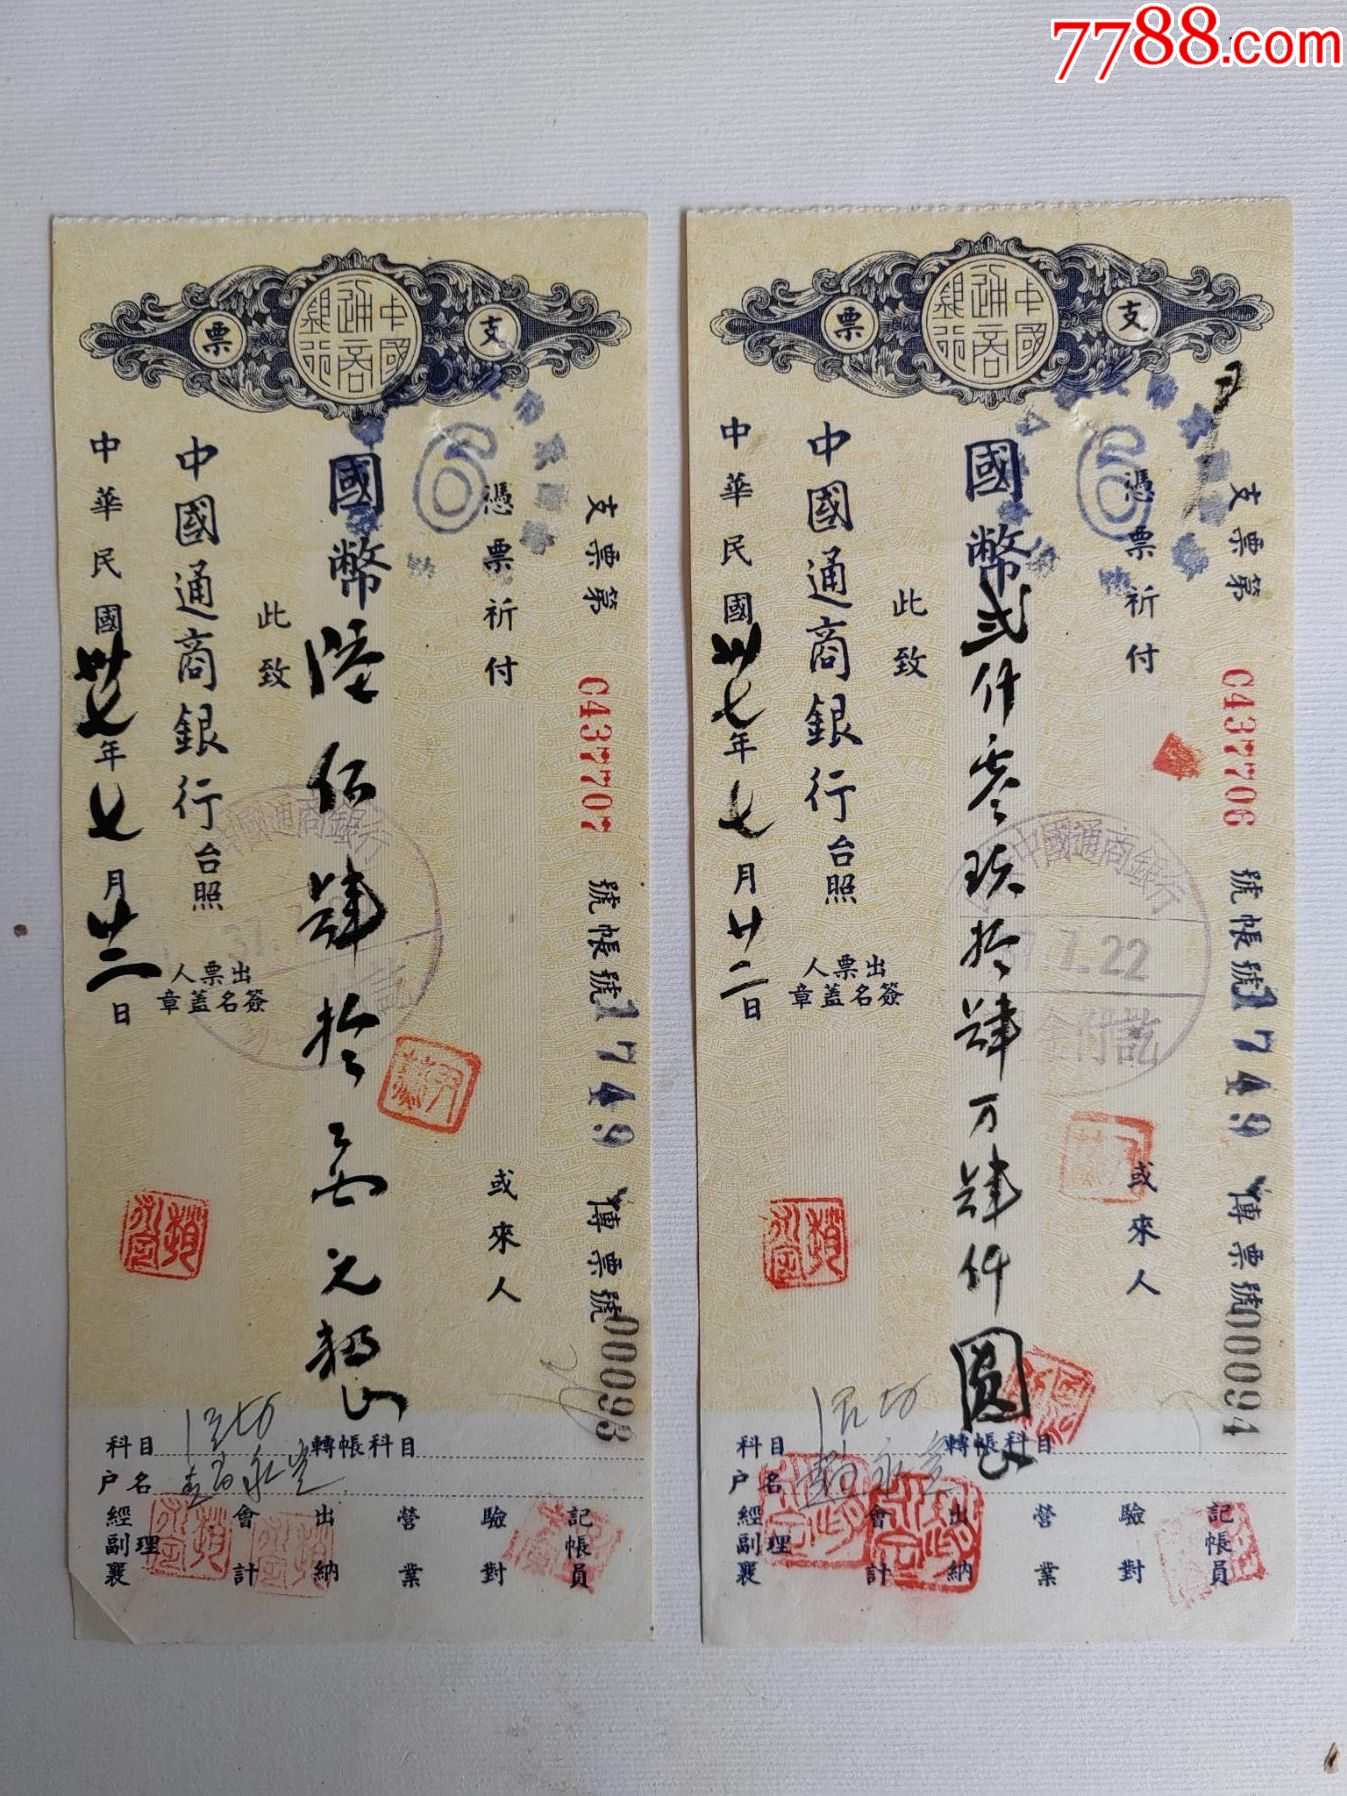 7788.com
支票
中國通商銀行
支票第 C4377707 號帳號 17749 傳票號 00093
憑票祈付
或來人
國幣陸佰肆拾
元
此致
中國通商銀行台照
出票人
簽名蓋章
中華民國卅七年七月廿二日
中國通商銀行
37.
訖
科目
轉帳科目
戶名
經副襄理
會計
出納
營業
驗對
記帳員
支票
中國通商銀行
支票第 C4377706 號帳號 17749 傳票號 00094
憑票祈付
或來人
國幣弍仟零玖拾肆万肆仟圓
此致
中國通商銀行台照
出票人
簽名蓋章
中華民國卅七年七月廿二日
中國通商銀行
7.22
付訖
科目
轉帳科目
戶名
經副襄理
會計
出納
營業
驗對
記帳員